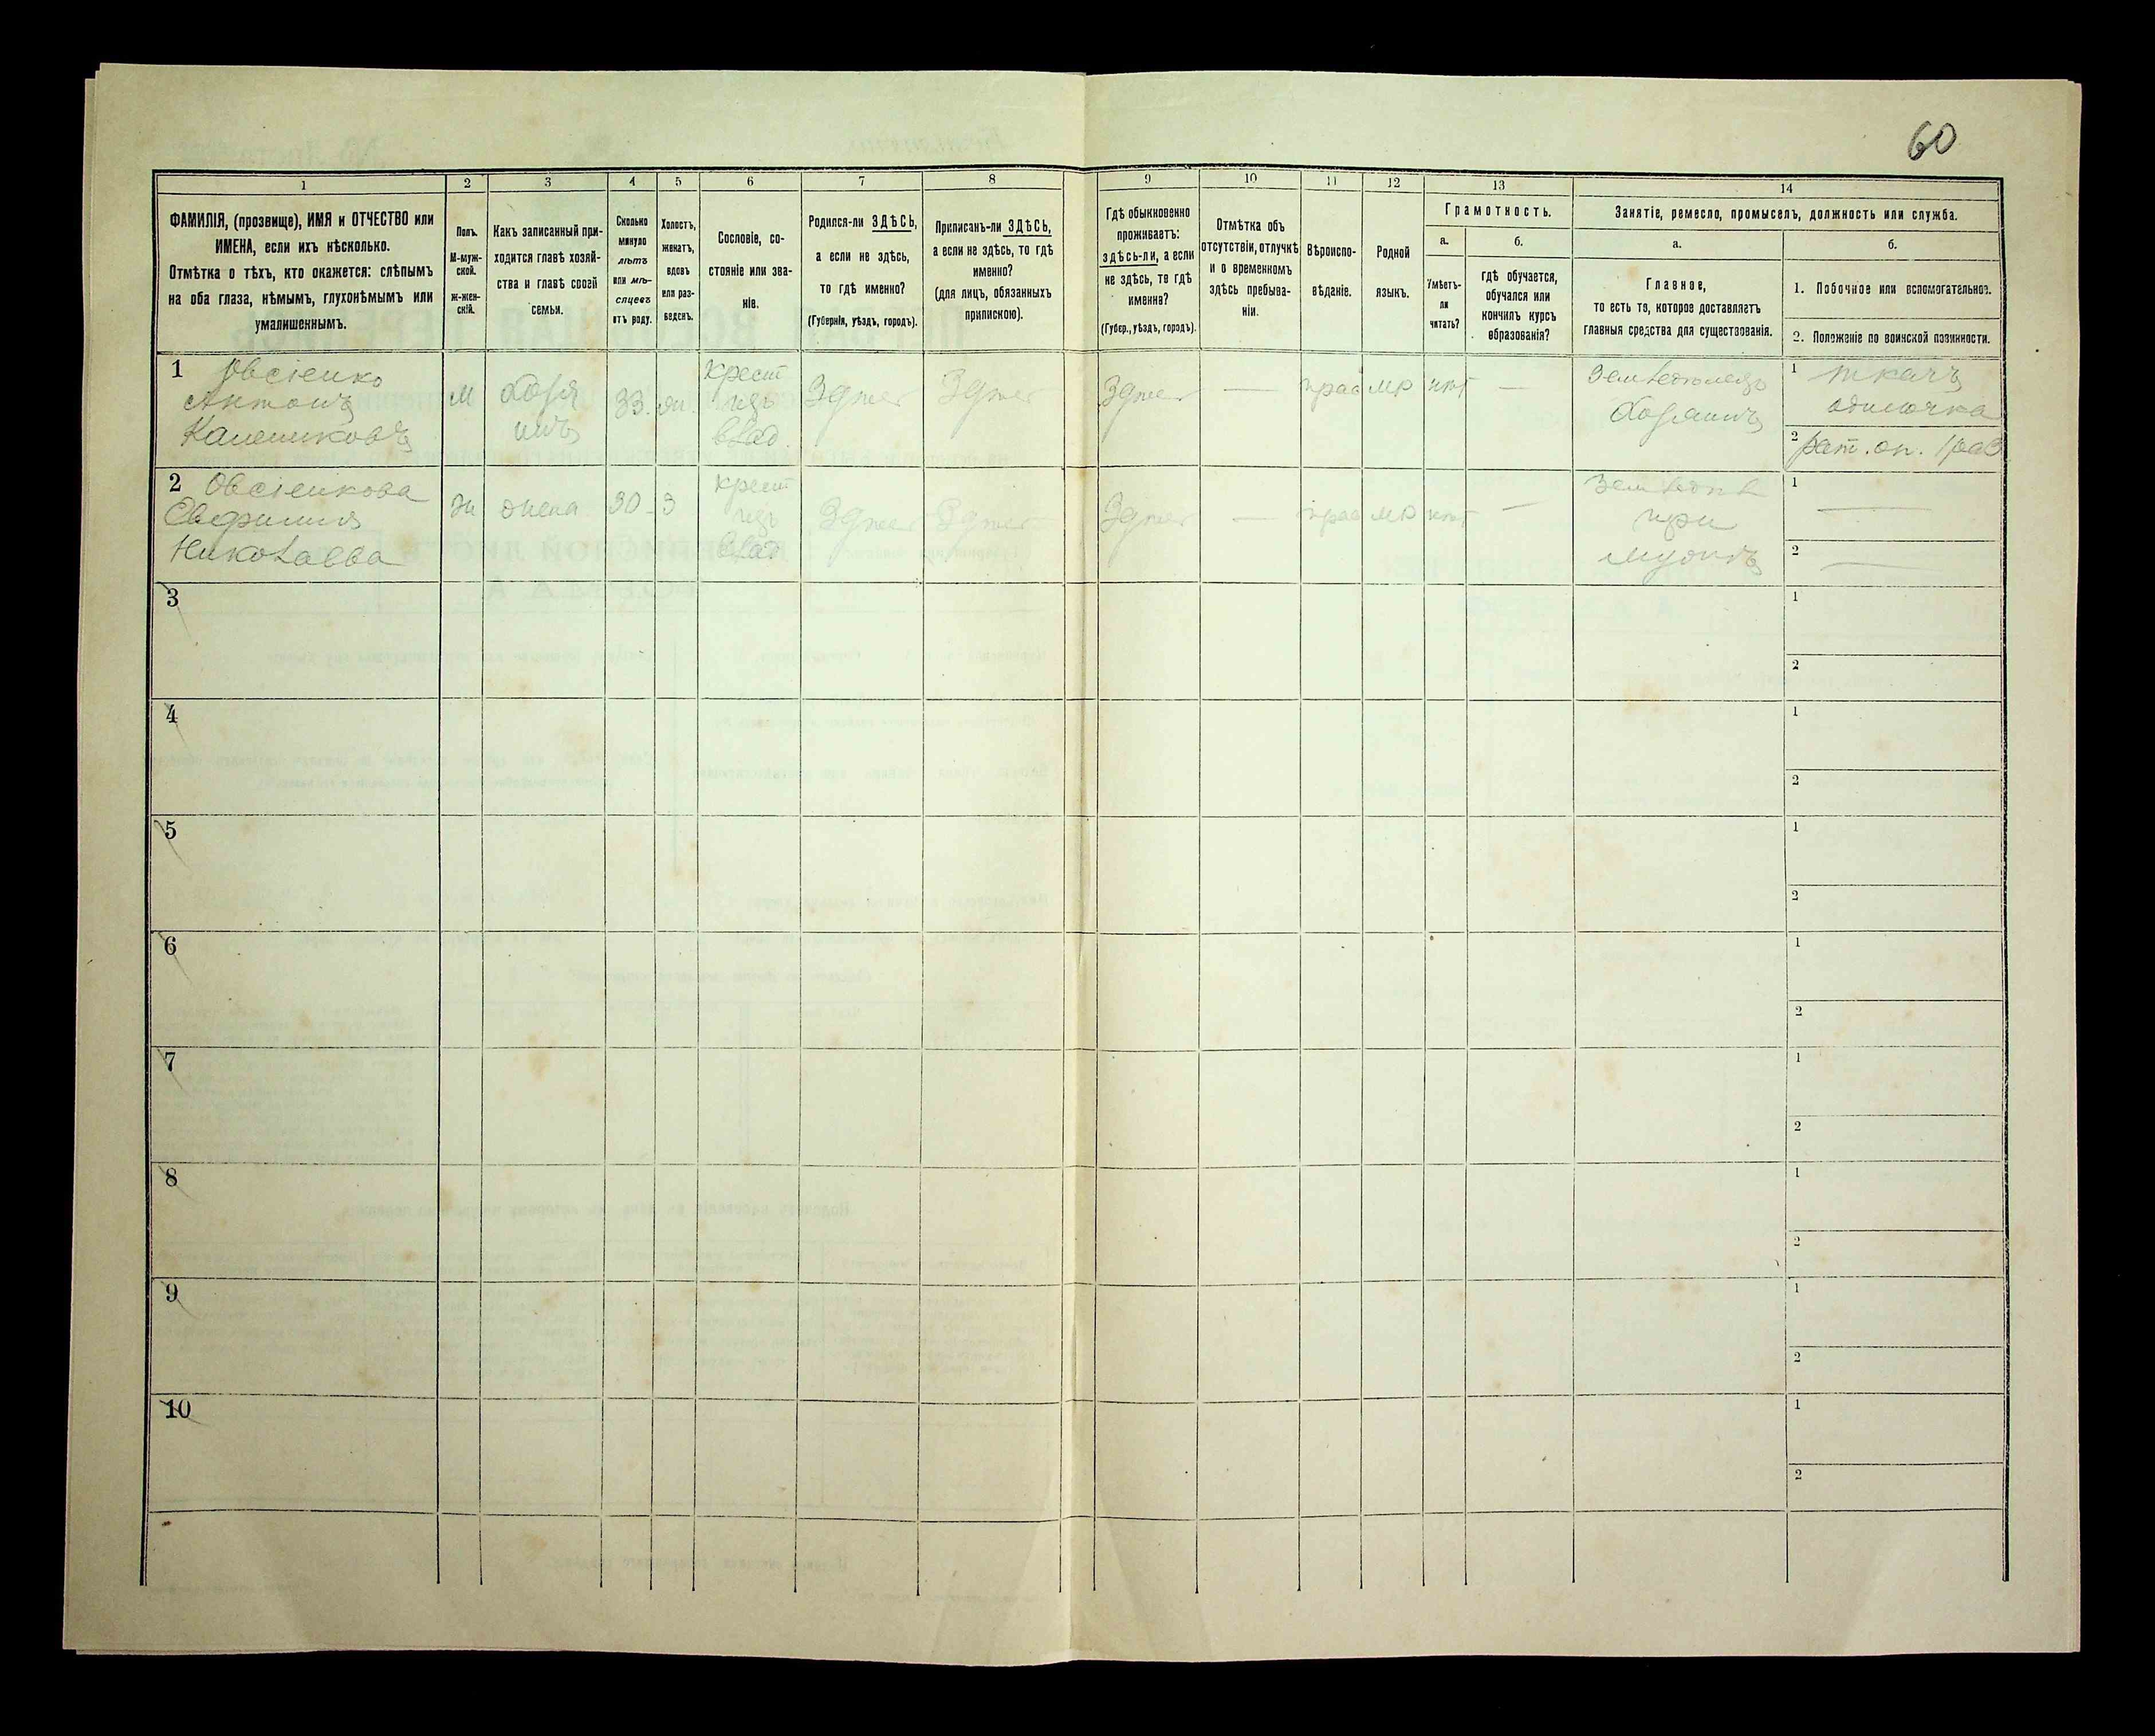 60
1 2 3 4 5 6 7 8 9 10 11 12 13 14
ФАМИЛІЯ, (прозвище), ИМЯ и ОТЧЕСТВО или
ИМЕНА, если ихъ нѣсколько.
Отмѣтка о тѣхъ, кто окажется: слѣпымъ
на оба глаза, нѣмымъ, глухонѣмымъ или
умалишеннымъ.
Полъ.
М-муж-
ской.
ж-жен-
скій.
Какъ записанный при-
ходится главѣ хозяй-
ства и главѣ своей
семьи.
Сколько
минуло
лѣтъ
или мѣ-
сяцевъ
отъ роду.
Холостъ,
женатъ,
вдовъ
или раз-
веденъ.
Сословіе, со-
стояніе или зва-
ніе.
Родился-ли ЗДѢСЬ,
а если не здѣсь,
то гдѣ именно?
(Губернія, уѣздъ, городъ).
Приписанъ-ли ЗДѢСЬ,
а если не здѣсь, то гдѣ
именно?
(для лицъ, обязанныхъ
припискою).
Гдѣ обыкновенно
проживаетъ:
здѣсь-ли, а если
не здѣсь, то гдѣ
именно?
(Губер., уѣздъ, городъ).
Отмѣтка объ
отсутствіи, отлучкѣ
и о временномъ
здѣсь пребыва-
ніи.
Вѣроиспо-
вѣданіе.
Родной
языкъ.
Грамотность.
а.
Умѣетъ-
ли
читать?
б.
гдѣ обучается,
обучался или
кончилъ курсъ
образованія?
Занятіе, ремесло, промыселъ, должность или служба.
а.
Главное,
то есть то, которое доставляетъ
главныя средства для существованія.
б.
1. Побочное или вспомогательное.
2. Положеніе по воинской повинности.
1 Овсіенко
Антонъ
Калениковъ
М
хозя
инъ
33.
жн.
крест
изъ
влад.
Здѣсь
Здѣсь
Здѣсь
—
прав
мр
нѣт
—
Земледѣлецъ
хозяинъ
1 ткачъ
одиночка
2 рат. оп. 1 раз
2 Овсіенкова
Евфимия
Николаева
ж
жена
30
З
крест
изъ
влад
Здѣсь
Здѣсь
Здѣсь
—
прав
мр
нѣт
—
Земледѣл
при
мужѣ
1 —
2 —
3
1
2
4
1
2
5
1
2
6
1
2
7
1
2
8
1
2
9
1
2
10
1
2